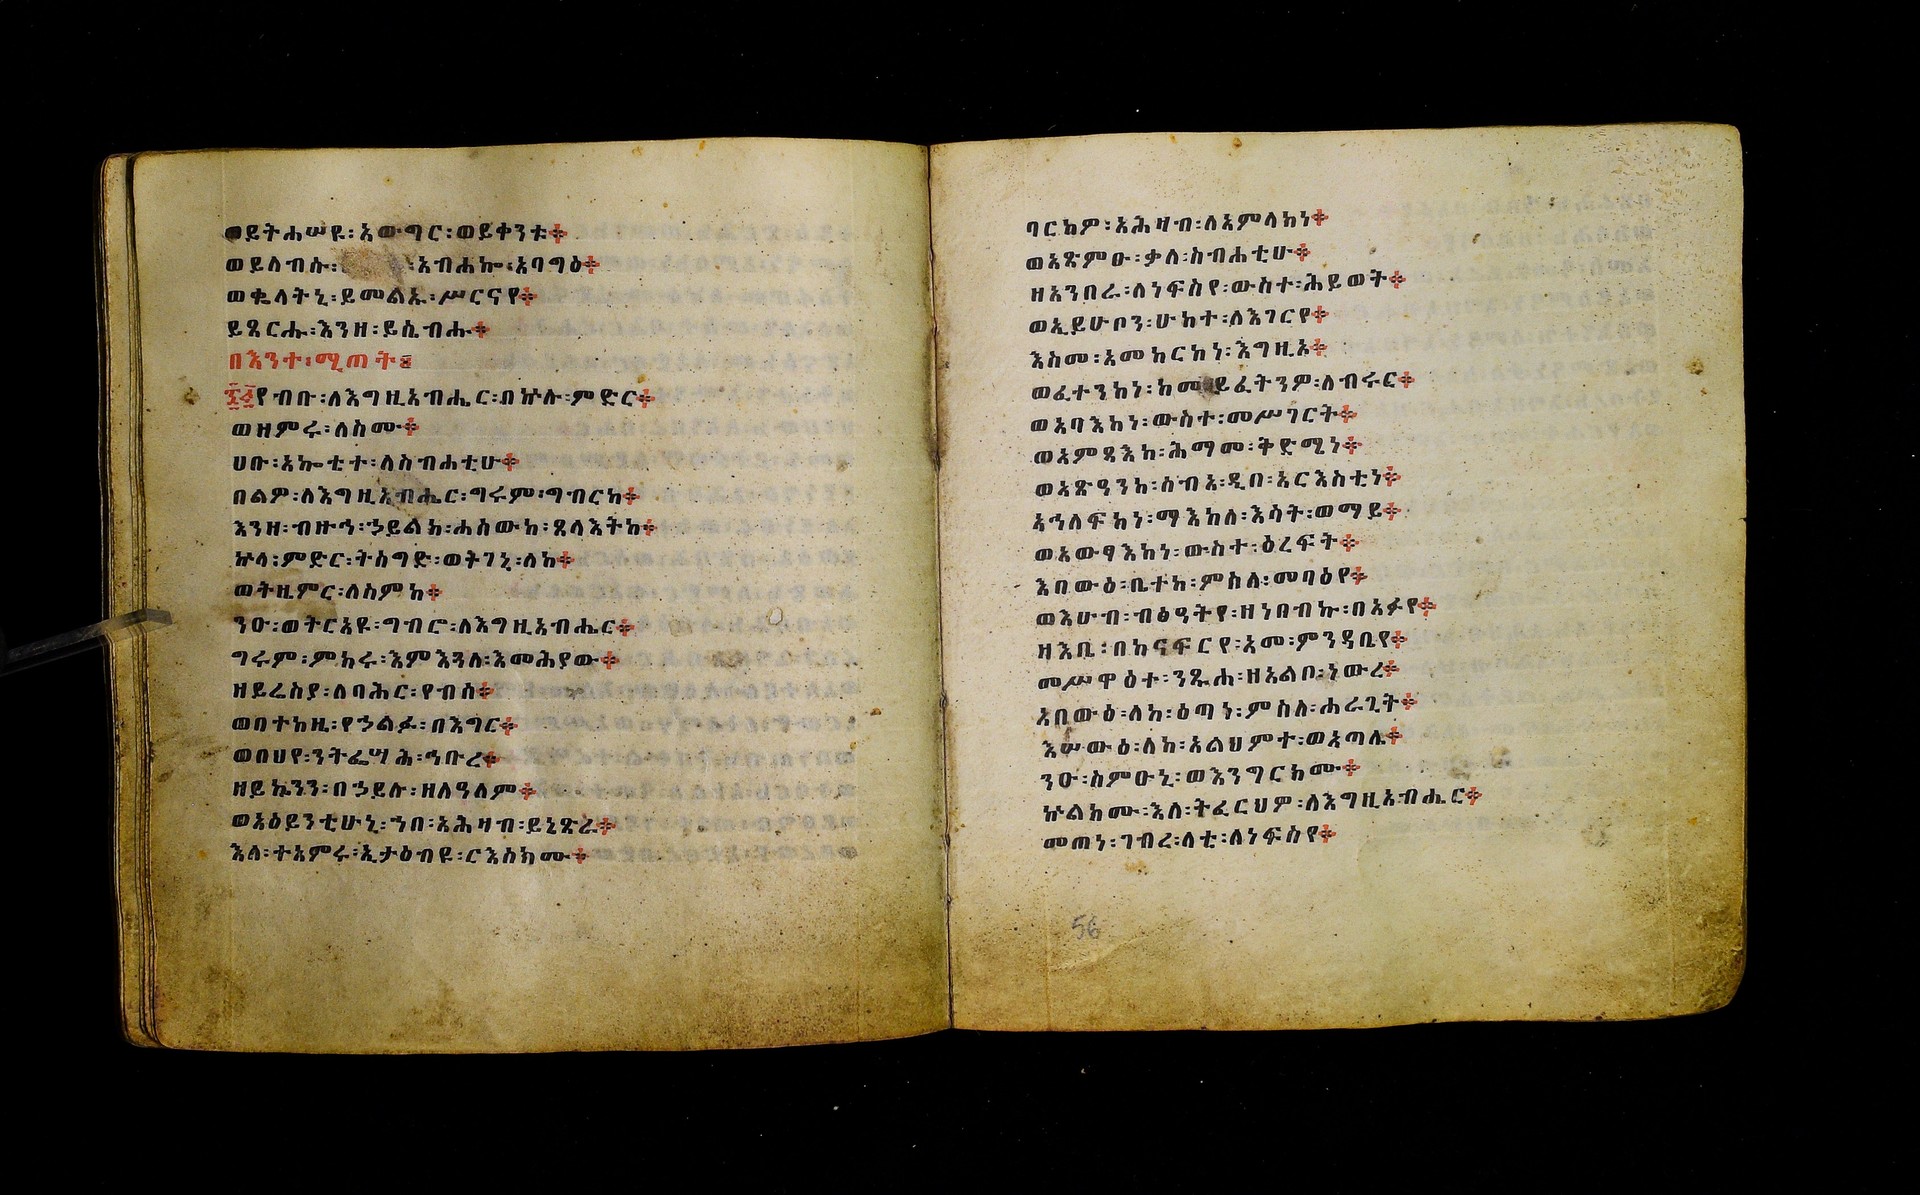 ወይትሐሠዩ፡አውግር፡ወይቀንቱ፨
ወይለብሱ፡ አብሐኰ፡አባግዕ፨
ወቈላትኒ፡ይመልኡ፡ሥርናየ፨
ይጼርሑ፡እንዘ፡ይሴብሑ፨
በእንተ፡ሚጠት፤
፷፭የብቡ፡ለእግዚአብሔር፡በኵሉ፡ምድር፨
ወዘምሩ፡ለስሙ፨
ሀቡ፡አኰቴተ፡ለስብሐቲሁ፨
በልዎ፡ለእግዚአብሔር፡ግሩም፡ግብርከ፨
እንዘ፡ብዙኅ፡ኃይልከ፡ሐሰውከ፡ጸላእትከ፨
ኵላ፡ምድር፡ትሰግድ፡ወትገኒ፡ለከ፨
ወትዜምር፡ለስምከ፨
ንዑ፡ወትርአዩ፡ግብሮ፡ለእግዚአብሔር፨
ግሩም፡ምክሩ፡እምእጓለ፡እመሕያው፨
ዘይሬስያ፡ለባሕር፡የብሰ፨
ወበተከዚ፡የኃልፉ፡በእግር፨
ወበህየ፡ንትፌሣሕ፡ኅቡረ፨
ዘይኴንን፡በኃይሉ፡ዘለዓለም፨
ወአዕይንቲሁኒ፡ኀበ፡አሕዛብ፡ይኔጽራ፨
እለ፡ተአምሩ፡ኢታዕብዩ፡ርእስክሙ፨
ባርክዎ፡አሕዛብ፡ለአምላክነ፨
ወአጽምዑ፡ቃለ፡ስብሐቲሁ፨
ዘአንበራ፡ለነፍስየ፡ውስተ፡ሕይወት፨
ወኢይሁቦን፡ሁከተ፡ለእገርየ፨
እስመ፡አመከርከነ፡እግዚኦ፨
ወፈተንከነ፡ከመ፡ይፈትንዎ፡ለብሩር፨
ወአባእከነ፡ውስተ፡መሥገርት፨
ወአምጻእከ፡ሕማመ፡ቅድሜነ፨
ወአጽዓንከ፡ሰብአ፡ዲበ፡አርእስቲነ፨
አኅለፍከነ፡ማእከለ፡እሳት፡ወማይ፨
ወአውፃእከነ፡ውስተ፡ዕረፍት፨
እበውዕ፡ቤተከ፡ምስለ፡መባዕየ፨
ወእሁብ፡ብፅዓትየ፡ዘነበብኩ፡በአፉየ፨
ዘእቤ፡በከናፍርየ፡አመ፡ምንዳቤየ፨
መሥዋዕተ፡ንጹሐ፡ዘአልቦ፡ነውረ፨
አበውዕ፡ለከ፡ዕጣነ፡ምስለ፡ሐራጊት፨
እሠውዕ፡ለከ፡አልህምተ፡ወአጣሌ፨
ንዑ፡ስምዑኒ፡ወእንግርክሙ፨
ኵልክሙ፡እለ፡ትፈርህዎ፡ለእግዚአብሔር፨
መጠነ፡ገብረ፡ላቲ፡ለነፍስየ፨
56